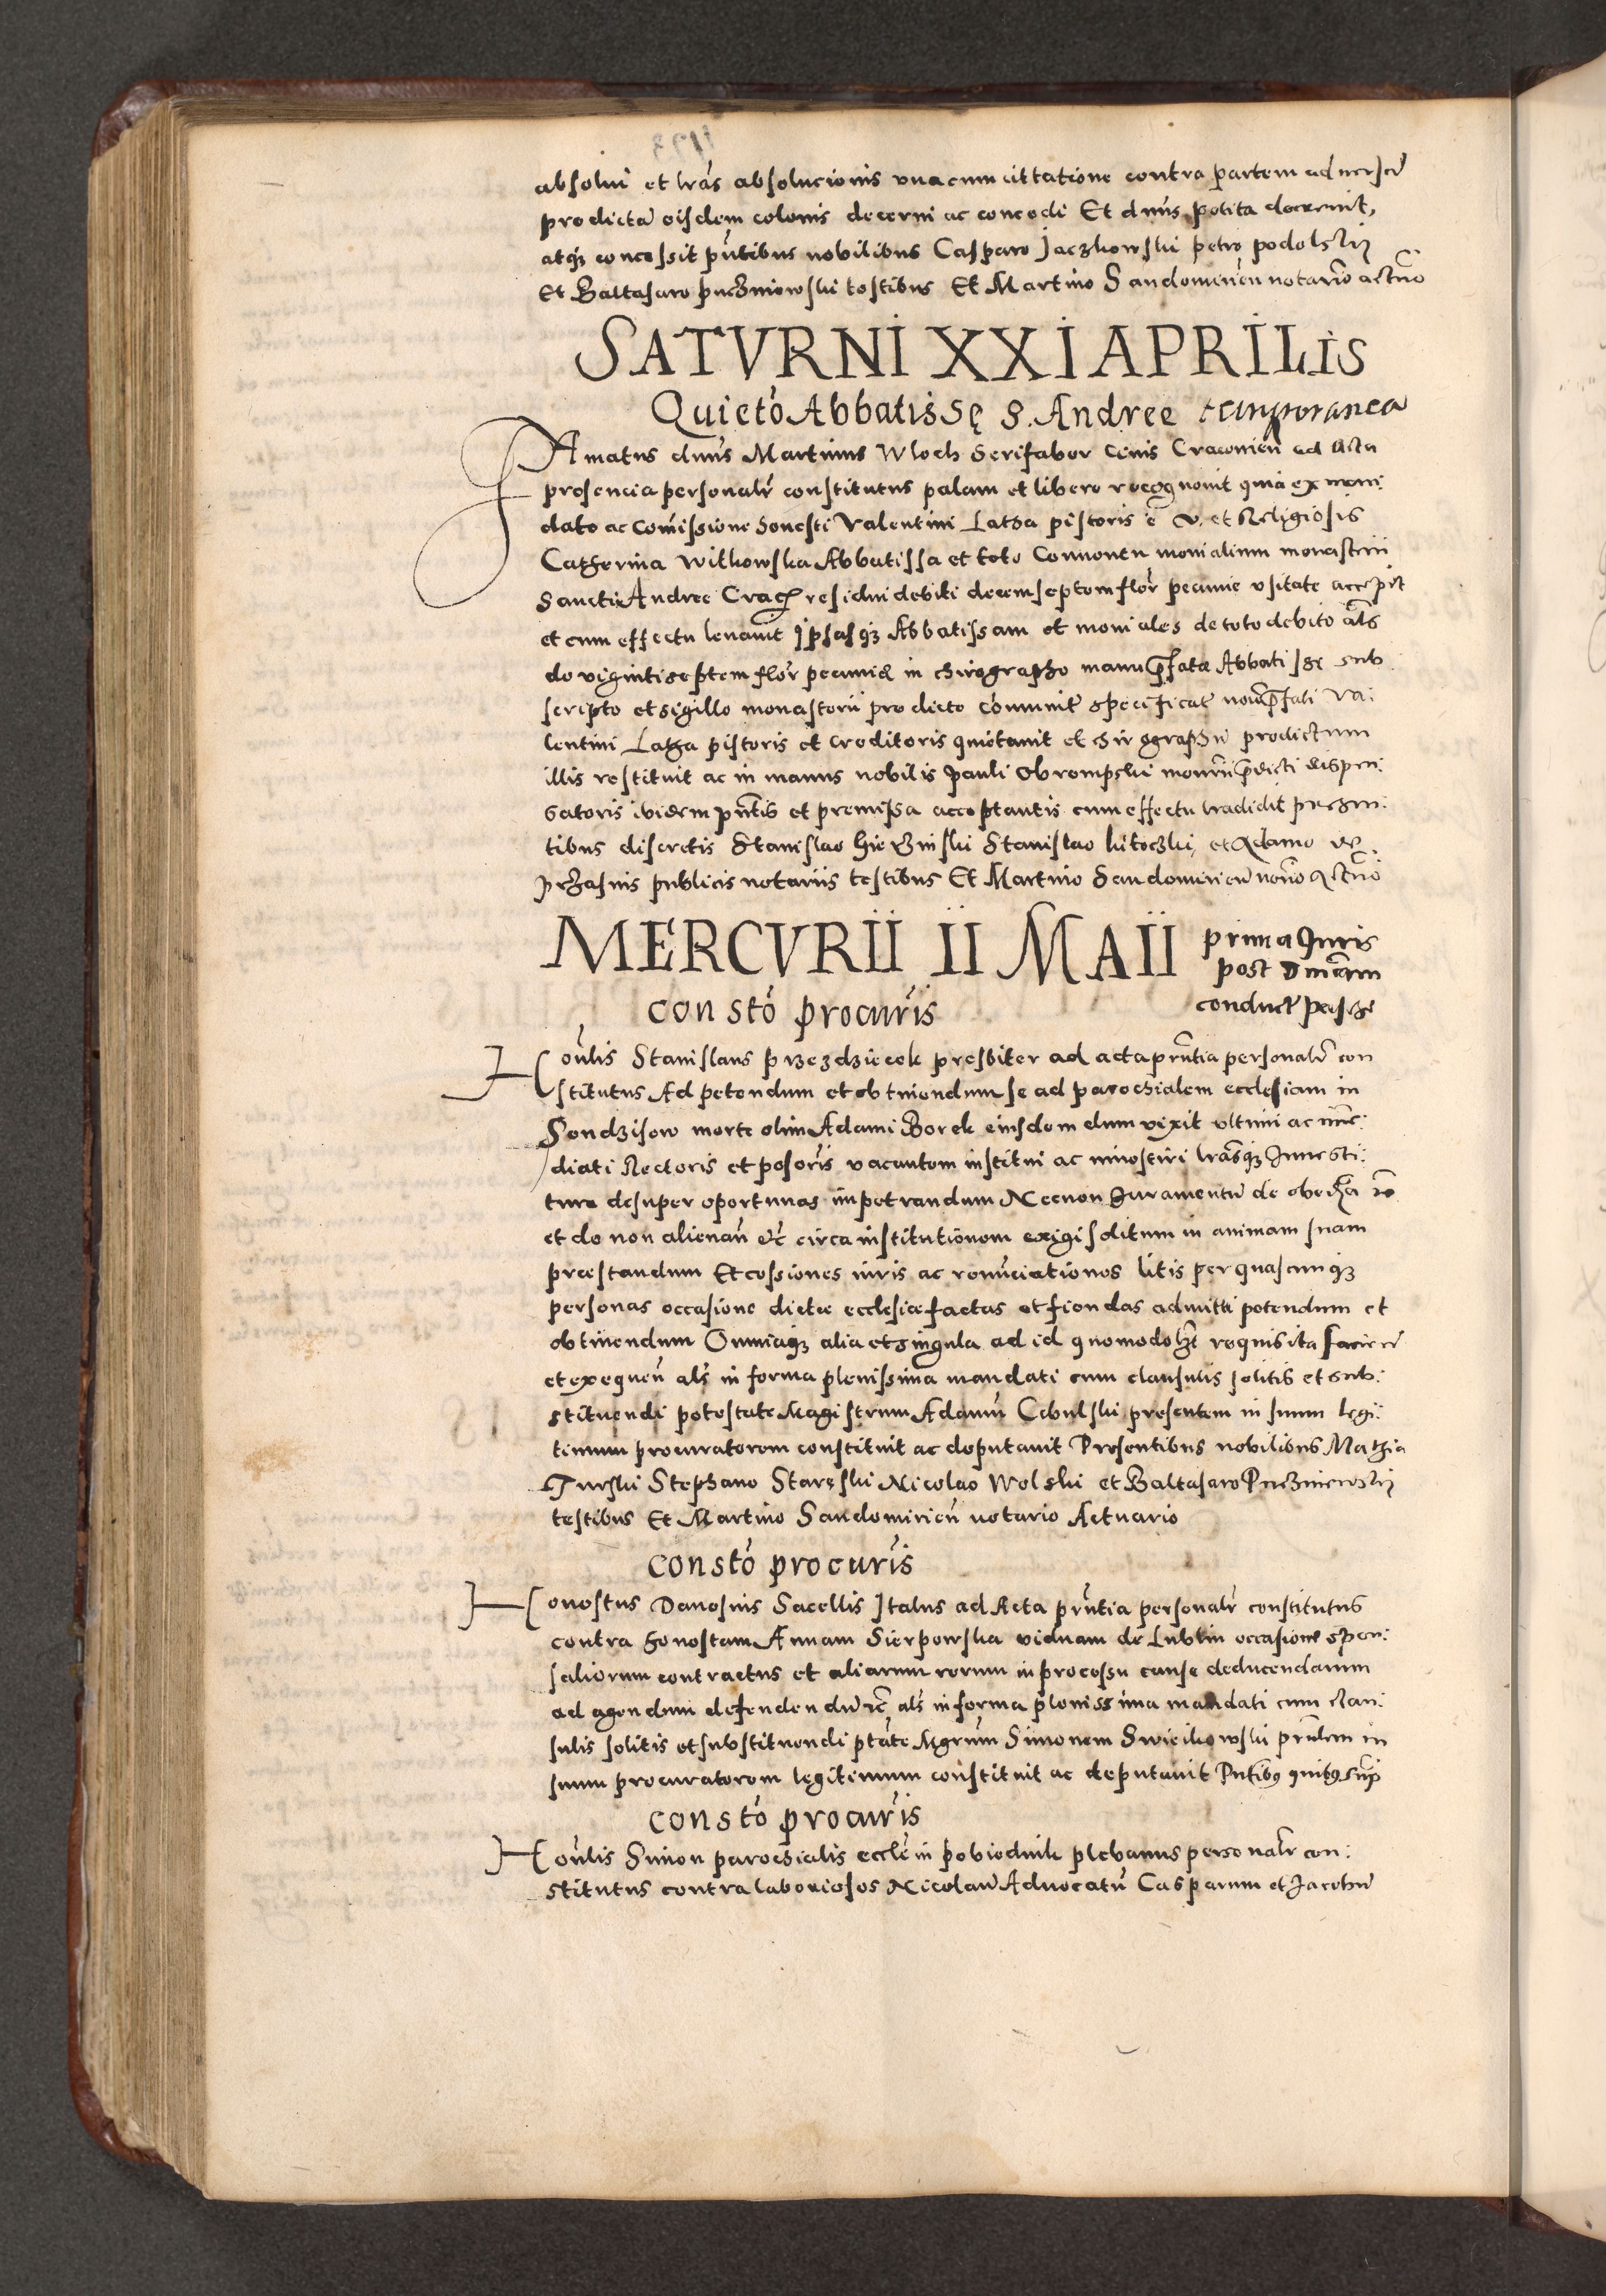 absolui et lrās absolucionis vnacum cittatione contra partem aduersā
predictā eisdem colonis decerni ac concedi Et dnūs petita decreuit,
atqȝ concessit pñtibus nobilibus Casparo Jaczkowski petro podolskij
Et Baltasaro puczniowski testibus Et Martino Sandomirieñ notario actūo
SATVRNI XXI APRILis
Quietō Abbatissę S. Andree temporanea
Famatus dnūs Martinus Wloch Serifaber Ciuis Cracouieñ ad Acta
presencia personalr̄ constitutus palam et libere recognouit quia ex man:
dato ac Comissione honesti Valentini Latha pistoris ē V. et Religiosis
Catherina Witkowska Abbatissa et toto Conuentu monialium monasterii
Sancti Andree Crac residui debiti decemseptem flor̄ pecunie vsitate accepit
et cum effectu leuauit Ipsasqȝ Abbatissam et moniales de toto debito als̄
de vigintiseptem flor̄ pecunię in chirographo manu p̄fatæ Abbatissę sub:
scripto et sigillo monasterii predicto cōmunit̄ specificat̄ noīe p̄fati Va:
lentini Latha pistoris et creditoris quietauit et chirographū predictum
illis restituit ac in manus nobilis Pauli Obrempski monrii p̄dicti dispen:
satoris ibidem pñtis et premissa acceptantis cum effectu tradidit presen:
tibus discretis Stanislao Stanislao et Adamo
publicis notariis testibus Et Martino Sandomirieñ norīo Actūo
MERCVRII II MAII prima Juris
post Dnīcam
conduct̄ pasche
constō procuris̄
Hoñlis Stanislaus Przezdzieczk presbiter ad acta pñtia personalr̄ con
stitutus Ad petendum et obtinendum se ad parochialem ecclesiam in
Sendzisow morte olim Adami Borek eiusdem dum vixit vltimi ac imē:
diati Rectoris et posoris̄ vacantem institui ac inuestiri lrāsqȝ Inuesti:
ture desuper oportunas impetrandum Necnon Juramentū de obedia
et de non alienañ etc̄ circa institutionem exigi solitum in animam suam
prestandum Et cessiones iuris ac renūciationes litis per quascunqȝ
personas occasione dictæ ecclesiæ factas et fiendas admitti petendum et
obtinendum Omniaqȝ alia et singula ad id quomodolȝt requisita facieñ
et exequeñ als̄ in forma plenissima mandati cum clausulis solitis et sub:
stituendi potestate Magistrum Adamū Cebulski presentem in suum legi:
timum procuratorem constituit ac deputauit Presentibus nobilibus Mathia
Turski Stephano Staręski Nicolao Wolski et Baltasaro Puczniewskij
testibus Et Martino Sandomirieñ notario Actuario
constō procuris̄
Honestus Danesius Sacellis Italus ad Acta pr̄ntia personalr̄ constitutus
contra honestam Annam Sierpowska viduam de Lublin occasione spon:
saliorum contractus et aliarum rerum in processu cause deducendarum
ad agendum defendendū etc̄ als̄ in forma plenissima mandati cum clau:
sulis solitis et substituendi ptāte Mgrūm Simonem Swieikowski pñtem in
suum procuratorem legitimum constituit ac deputauit Pñtibȝ quibȝ sup̄
constō procuris̄
Hoñlis Simon parochialis ecclē in pobiednik plebanus personalr̄ con:
stitutus contra laboriosos Nicolaū Aduocatū Casparum et Jacobū